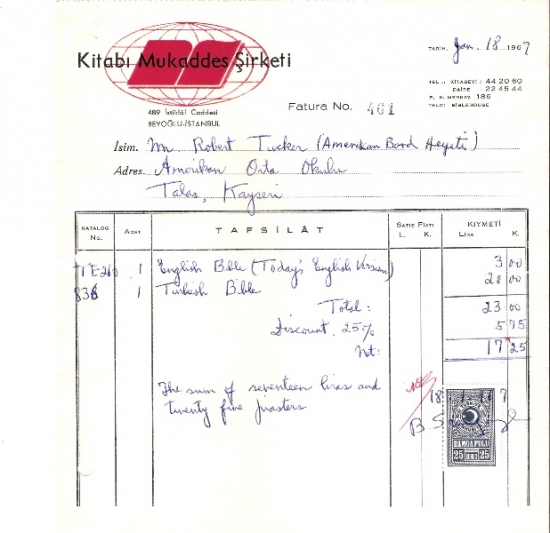 Kitabı Mukaddes Şirketi
489 İstiklâl Caddesi
BEYOĞLU-İSTANBUL
TARİH, Jan. 18, 1967
TEL.: KİTABEVİ: 44 20 60
DAİRE 22 45 44
P. K. MERKEZ 186
TELG: BİBLEHOUSE
Fatura No. 461
İsim. Mr. Robert Tucker (Amerikan Bord Heyeti)
Adres. Amerikan Orta Okulu
Talas, Kayseri
KATALOG No. ADET TAFSİLÂT SATIŞ FİATI L. K. KIYMETİ LİRA K.
TE-260 1 English Bible (Today's English Version) 3 00
83 1 Turkish Bible 20 00
Total: 23 00
Discount 25% 5 75
Net: 17 25
The sum of seventeen liras and
twenty five piasters
DAMGA PULU
25 25